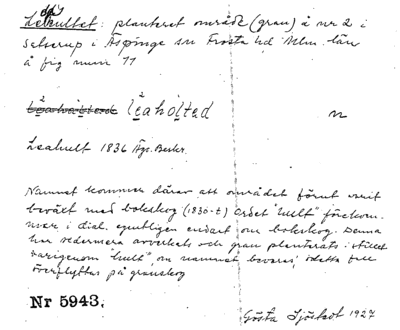 Lehultet: planterat område (gran) å nr 2 i
Setserup i Äspinge sn Frosta hd Mlm. län
å fig mim 11
leahòlted n
Leahult 1836 Äg. Beskr.
Namnet kommer därav att området förut varit
beväxt med bokskog (1830-t) Ordet "hult" förekom-
mer i dial. egentligen endast om bokskog. Denna
har sedermera avverkats och gran planterats i stället
varigenom "hult" om namnet bevaras, i detta fall
överflyttas på granskog
Nr 5943.
Gösta Sjöstedt 1927